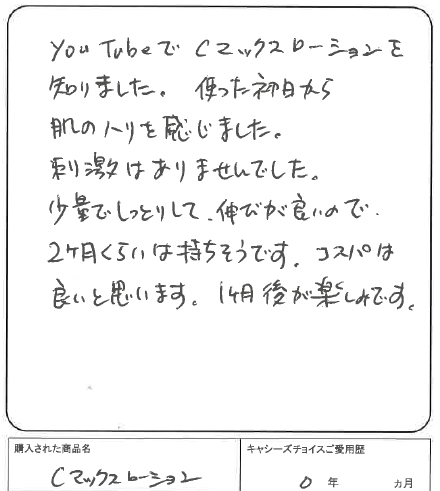 YouTubeで Cマックスローションを
知りました。 使った初日から
肌のハリを感じました。
刺激はありませんでした。
少量でしっとりして、伸びが良いので、
2ヶ月くらいは持ちそうです。コスパは
良いと思います。1ヶ月後が楽しみです。
購入された商品名
Cマックスローション
キャシーズチョイスご愛用歴
0 年 ヵ月